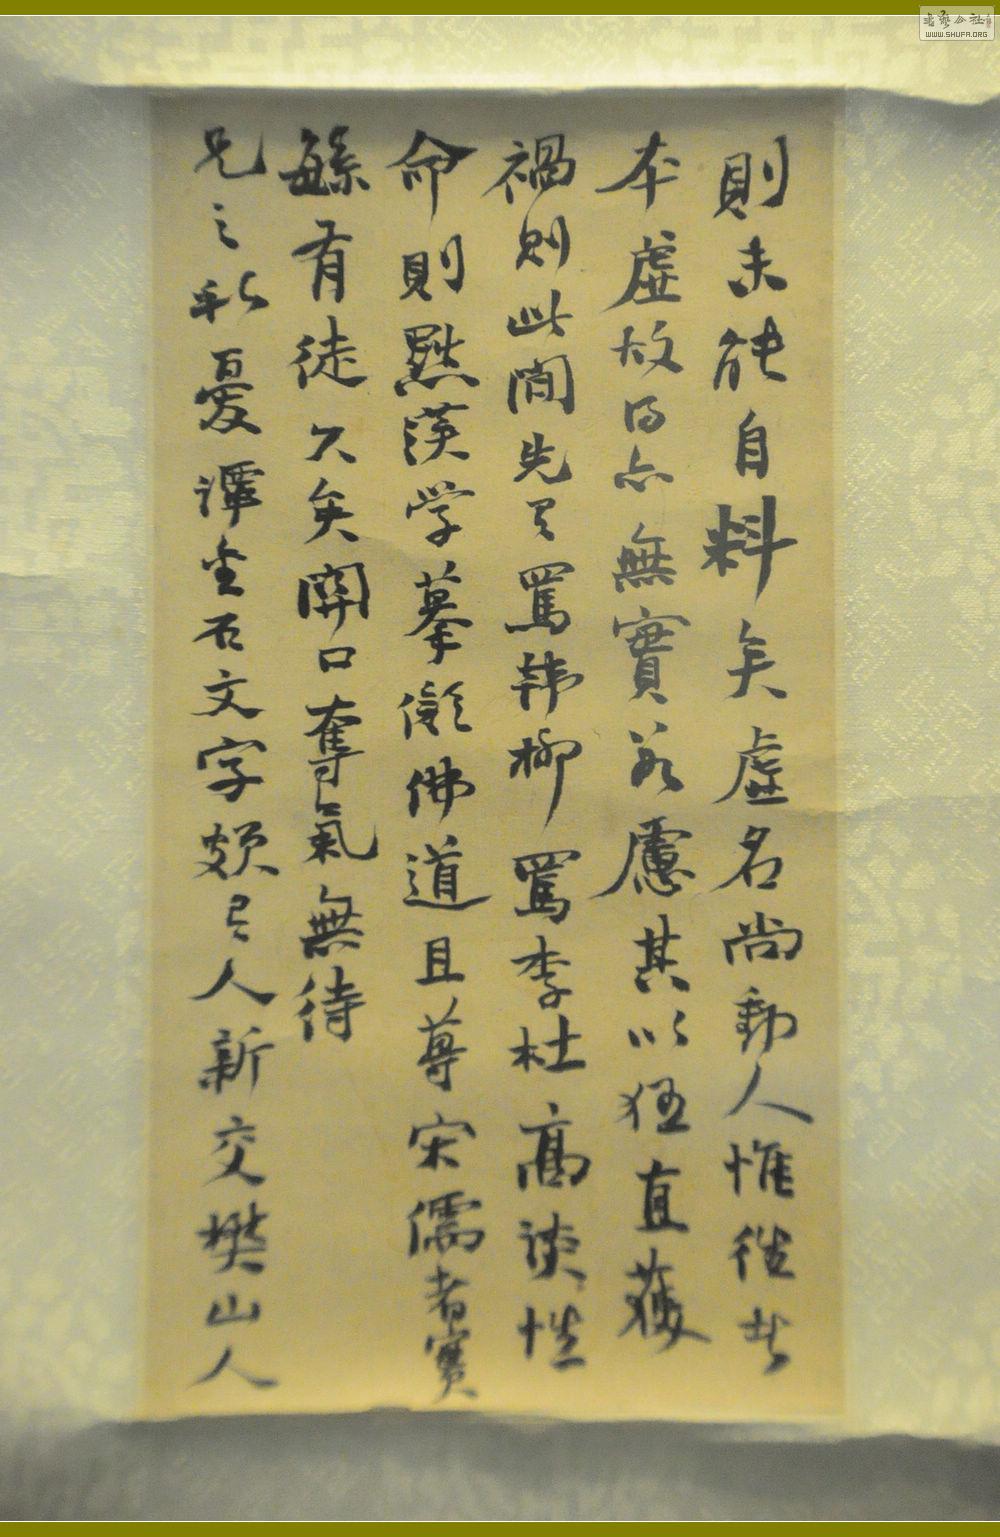 則未能自料矣虛名尚動人惟往者
本虛故得亦無實若慮其以狂直獲
禍則此間先已罵韓柳罵李杜高談性
命則點漢學摹儗佛道且尊宋儒者實
繇有徒久矣開口奪氣無待
兄之私憂譚金石文字頗已人新交樊山人
WWW.SHUFA.ORG